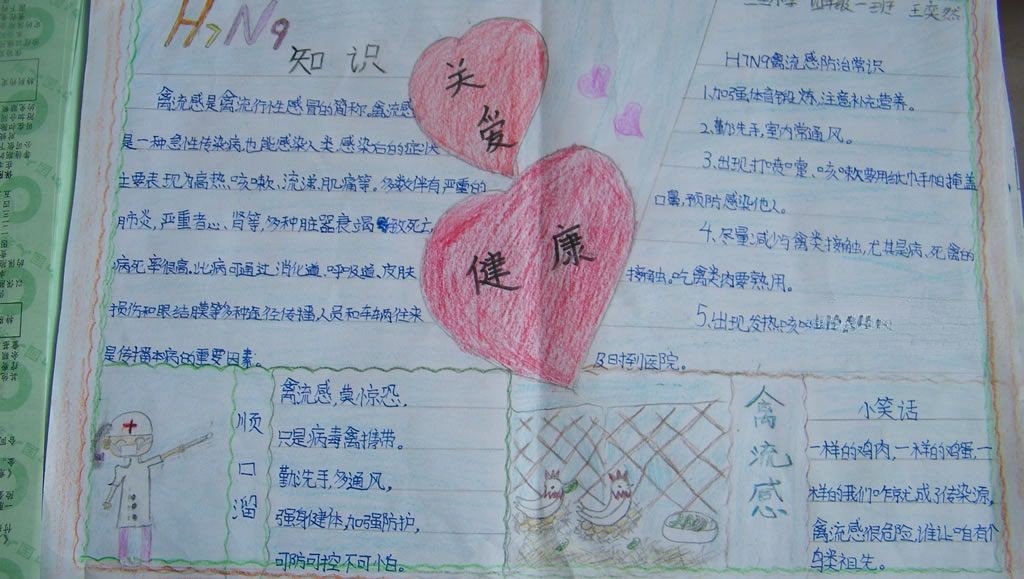 H7N9
知识
禽流感是禽流行性感冒的简称,禽流感
是一种急性传染病,也能感染人类,感染后的症状
主要表现为高热、咳嗽、流涕、肌痛等。多数伴有严重的
肺炎,严重者心、肾等,多种脏器衰竭致死亡,
病死率很高,此病可通过消化道、呼吸道、皮肤
损伤和眼结膜等多种途径传播人员和车辆往来
是传播本病的重要因素。
关爱
健康
四年级一班 王奕然
H7N9禽流感防治常识
1.加强体育锻炼,注意补充营养。
2.勤洗手,室内常通风。
3.出现打喷嚏、咳嗽要用纸巾手帕掩盖
口鼻,预防感染他人。
4.尽量减少与禽类接触,尤其是病、死禽的
接触。吃禽类肉要熟用。
5.出现发热、咳
及时到医院。
顺口溜
禽流感,莫惊恐,
只是病毒禽携带。
勤洗手,多通风,
强身健体,加强防护,
可防可控不可怕。
禽流感
小笑话
一样的鸡肉,一样的鸡蛋,一
样的我们咋就成了传染源,
禽流感很危险,谁让咱有个
鸟类祖先。